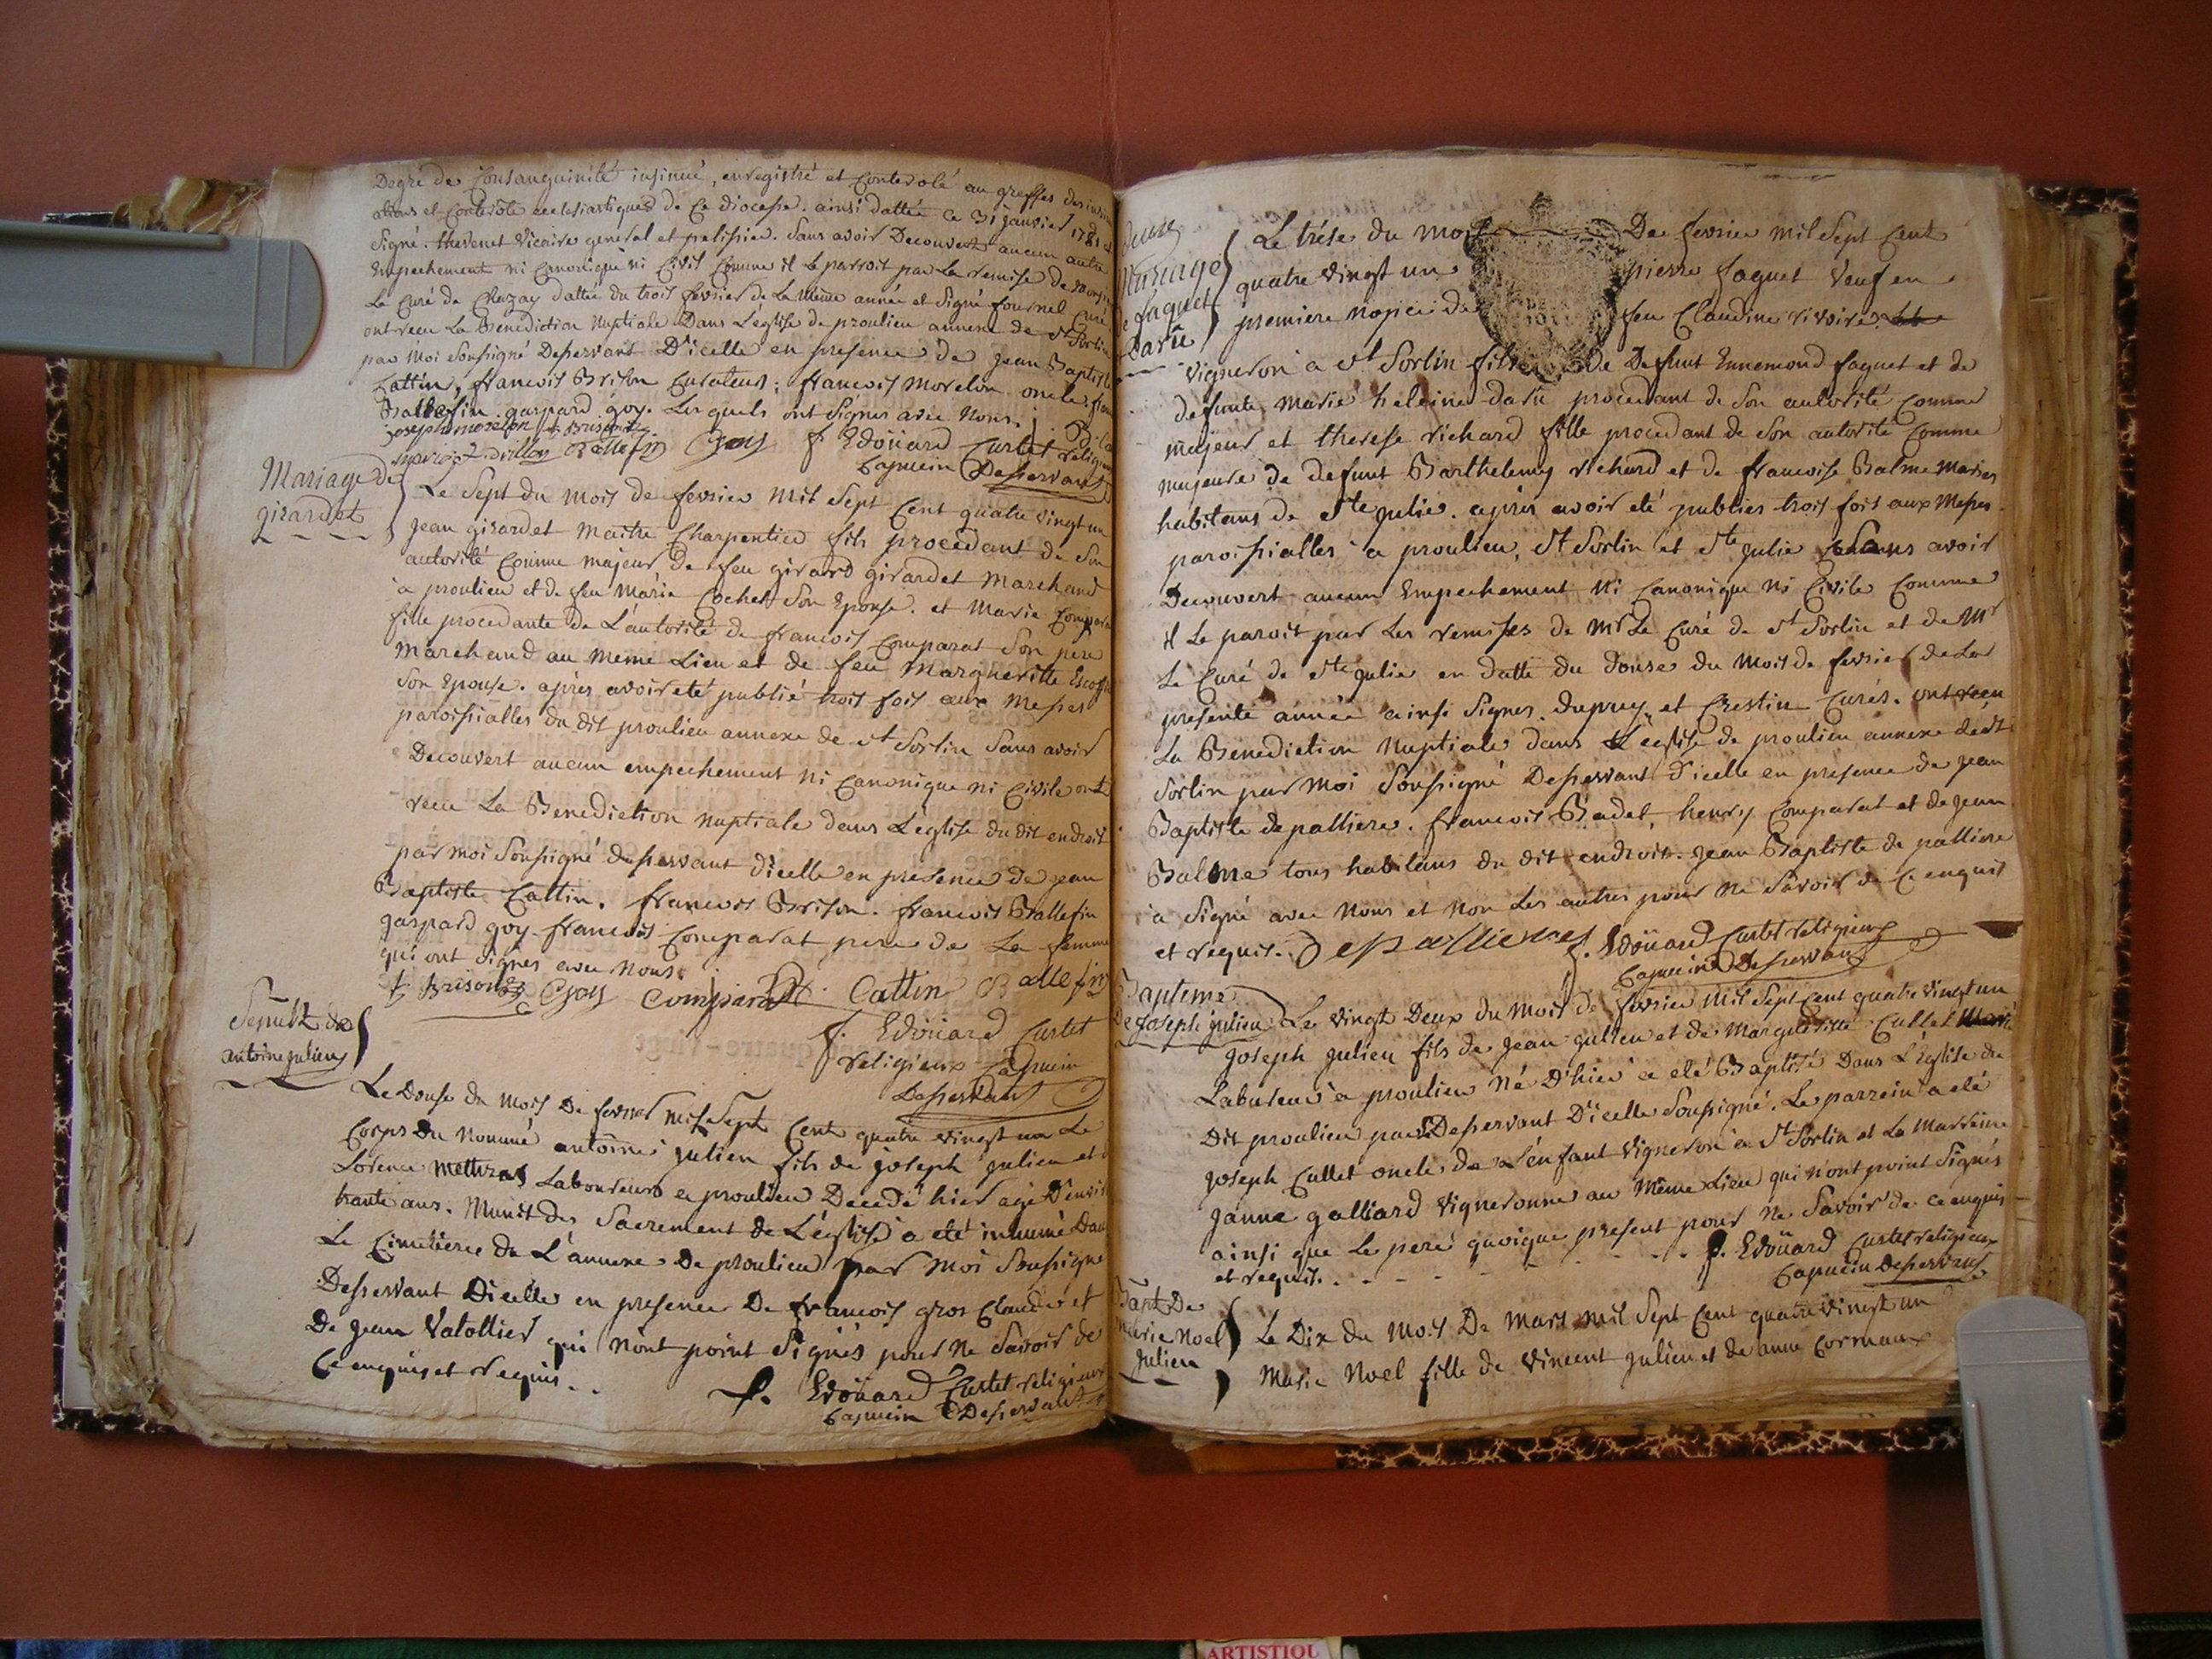 Degré de Consanguinité insinué, enregistré et Contrerolé au greffes des
ations et Controle ecclesiastiques de Ce diocese. ainsi dattée Ce 31 janvier 1781
Signé. thevenet Vicaire general et plus bas. Sans avoir Decouvert aucun autre
Empechement ni Canonique ni Civil Comme il le paroit par la remise de
Le Curé de Chazay dattée du trois fevrier de la même année et Signé fournel Curé
ont recu La Benediction Nuptiale Dans L'église de proulieu annexe de St Sorlin
par Moi Soussigné Desservant D'icelle en presence de jean Baptiste
Cattin, francois Brison Curateur; francois Morelon oncle
Ballefin gaspard goy. Lesquels ont Signés avec Nous.
joseph morelon f. Brison
Ballefin Goy f. Edoüard Curtet religieux
Capucin Desservant
Mariage de
girardet
Le Sept du Mois de fevrier Mil Sept Cent quatre vingt un
jean girardet Maitre Charpentier fils procedant de Son
autorité Comme majeur de feu girard girardet Marchand
à proulieu et de feu Marie Cochet Son Epouse. et Marie Comparat
fille procedante de L'autorité de francois Comparat Son pere
Marchand au meme Lieu et de feu Margueritte
Son Epouse. après avoir eté publié trois fois aux Messes
paroissialles du dit proulieu annexe de St Sorlin Sans avoir
Decouvert aucun empechement ni Canonique ni Civile ont
recu La Benediction nuptiale dans L'église du dit endroit
par moi Soussigné desservant d'icelle en presence de jean
Baptiste Cattin. francois Brison. francois Ballefin
gaspard goy. francois Comparat pere de La femme
qui ont signés avec nous.
f. Brison Goy Comparat Cattin Ballefin
f. Edoüard Curtet
religieux Capucin
Desservant
Sepult. de
antoine julien
Le Douse du Mois De fevrier Mil Sept Cent quatre vingt un Le
Corps du Nommé antoine julien fils de joseph julien et
Lorence Laboureur a proulieu Decedé hier agé D'environ
trante ans. Munit des Sacrement de L'église a eté inhumé Dans
Le Cimetiere de L'annexe De proulieu par Moi Soussigné
Desservant D'icelle en presence De francois gros Claude et
De jean Vatollier qui n'ont point Signés pour ne Savoir de
Ce enquis et requis..
f. Edoüard Curtet religieux
Capucin Desservant
Mariage
de faquet
Darû
Le trése du Mois De fevrier Mil Sept Cent
quatre vingt un pierre faquet Veuf en
premiere nopce de feu Claudine rivoire
Vigneron à St Sorlin fils de Defunt Ennemond faquet et de
defunte Marie heleine darû procedant de Son autorité Comme
majeur et therese richard fille procedant de Son autorité Comme
majeure de defunt Barthelemy richard et de francoise Balme Mariés
habitans de Ste julie. après avoir eté publiés trois fois aux Messes
paroissialles a proulieu, St Sorlin et Ste julie Sans avoir
Decouvert aucun Empechement Ni Canonique Ni Civile Comme
il Le paroit par Les remises de Mr Le Curé de St Sorlin et de Mr
Le Curé de Ste julie en datte du douse du Mois de fevrier de La
presente année ainsi Signés. Dupuy et Crestin Curés. ont recu
La Benediction Nuptiale dans L'église de proulieu annexe de St
Sorlin par Moi Soussigné Desservant d'icelle en presence de jean
Baptiste depalliere. francois Badet, henry Comparat et de jean
Balme tous habitans du dit endroit. jean Baptiste de palliere
a Signé avec Nous et Non Les autres pour Ne Savoir de Ce enquis
et requis. Depallieres f. Edoüard Curtet religieux
Capucin Desservant
Bapteme
De joseph julien
Le vingt Deux du Mois de fevrier Mil Sept Cent quatre vingt un
joseph julien fils de jean julien et de Margueritte Cullet
Laboureur à proulieu Né D'hier a eté Baptisé Dans L'église du
Dit proulieu par Desservant D'icelle Soussigné. Le parrein a eté
joseph Cullet oncle de L'enfant Vigneron à St Sorlin et La Marreine
janne galliard Vigneronne au Même Lieu qui n'ont point Signés
ainsi que Le pere quoique present pour ne Savoir de ce enquis
et requis. f. Edoüard Curtet religieux
Capucin Desservant
Bapt. De
Marie Noel
julien
Le Dix du Mois De Mars Mil Sept Cent quatre vingt un
Marie Noel fille de Vincent julien et de anne Cormaux
ARTISTIQU